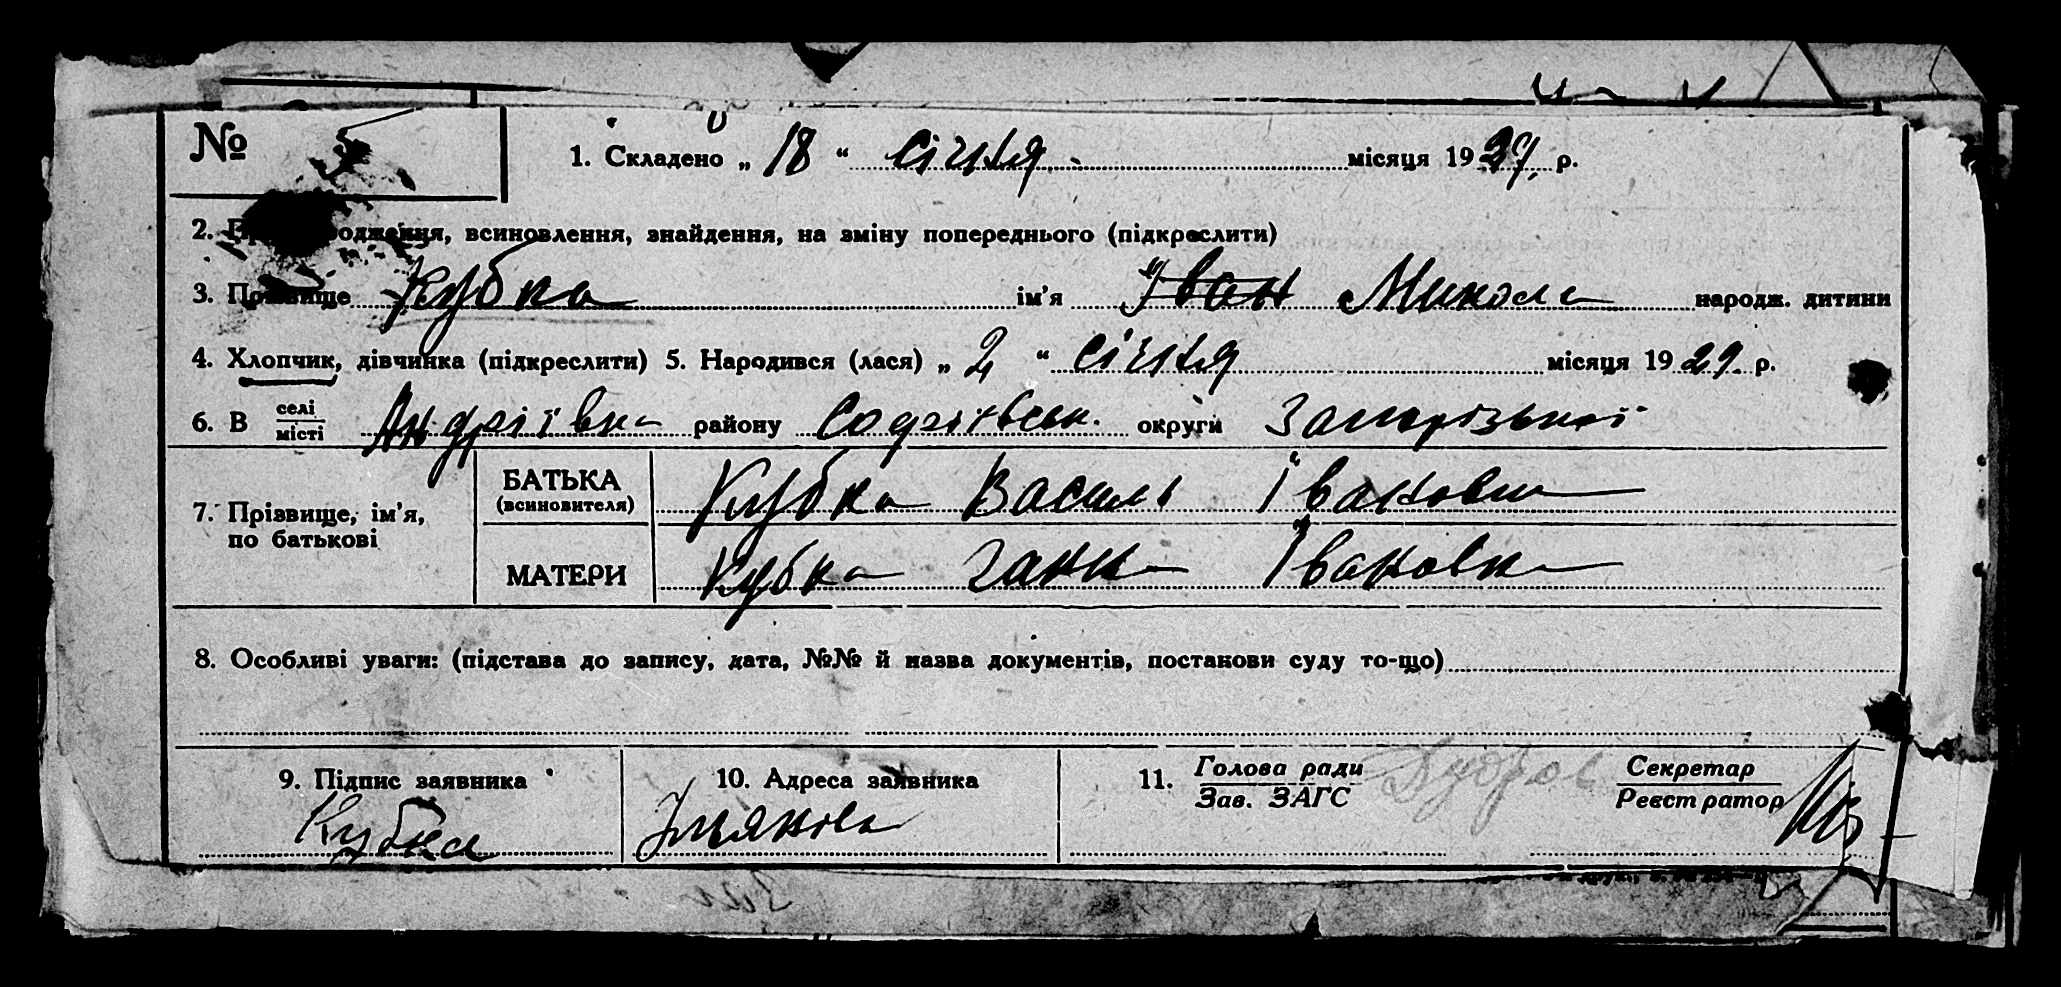 № 5
1. Складено „ 18 “ січня місяця 1929. р.
2. одження, всиновлення, знайдення, на зміну попереднього (підкреслити)
3. Прізвище Кубка ім'я Іван Микола народж. дитини
4. Хлопчик, дівчинка (підкреслити) 5. Народився (лася) „ 2 “ січня місяця 1929. р.
6. В селі місті Андріївка району Софіївськ. округи Запорізької
7. Прізвище, ім'я, по батькові
БАТЬКА (всиновителя) Кубка Василь Іванович
МАТЕРИ Кубка Ганна Івановна
8. Особливі уваги: (підстава до запису, дата, №№ й назва документів, постанови суду то-що)
9. Підпис заявника 10. Адреса заявника 11. Голова ради Зав. ЗАГС Секретар Реєстратор
Кубка